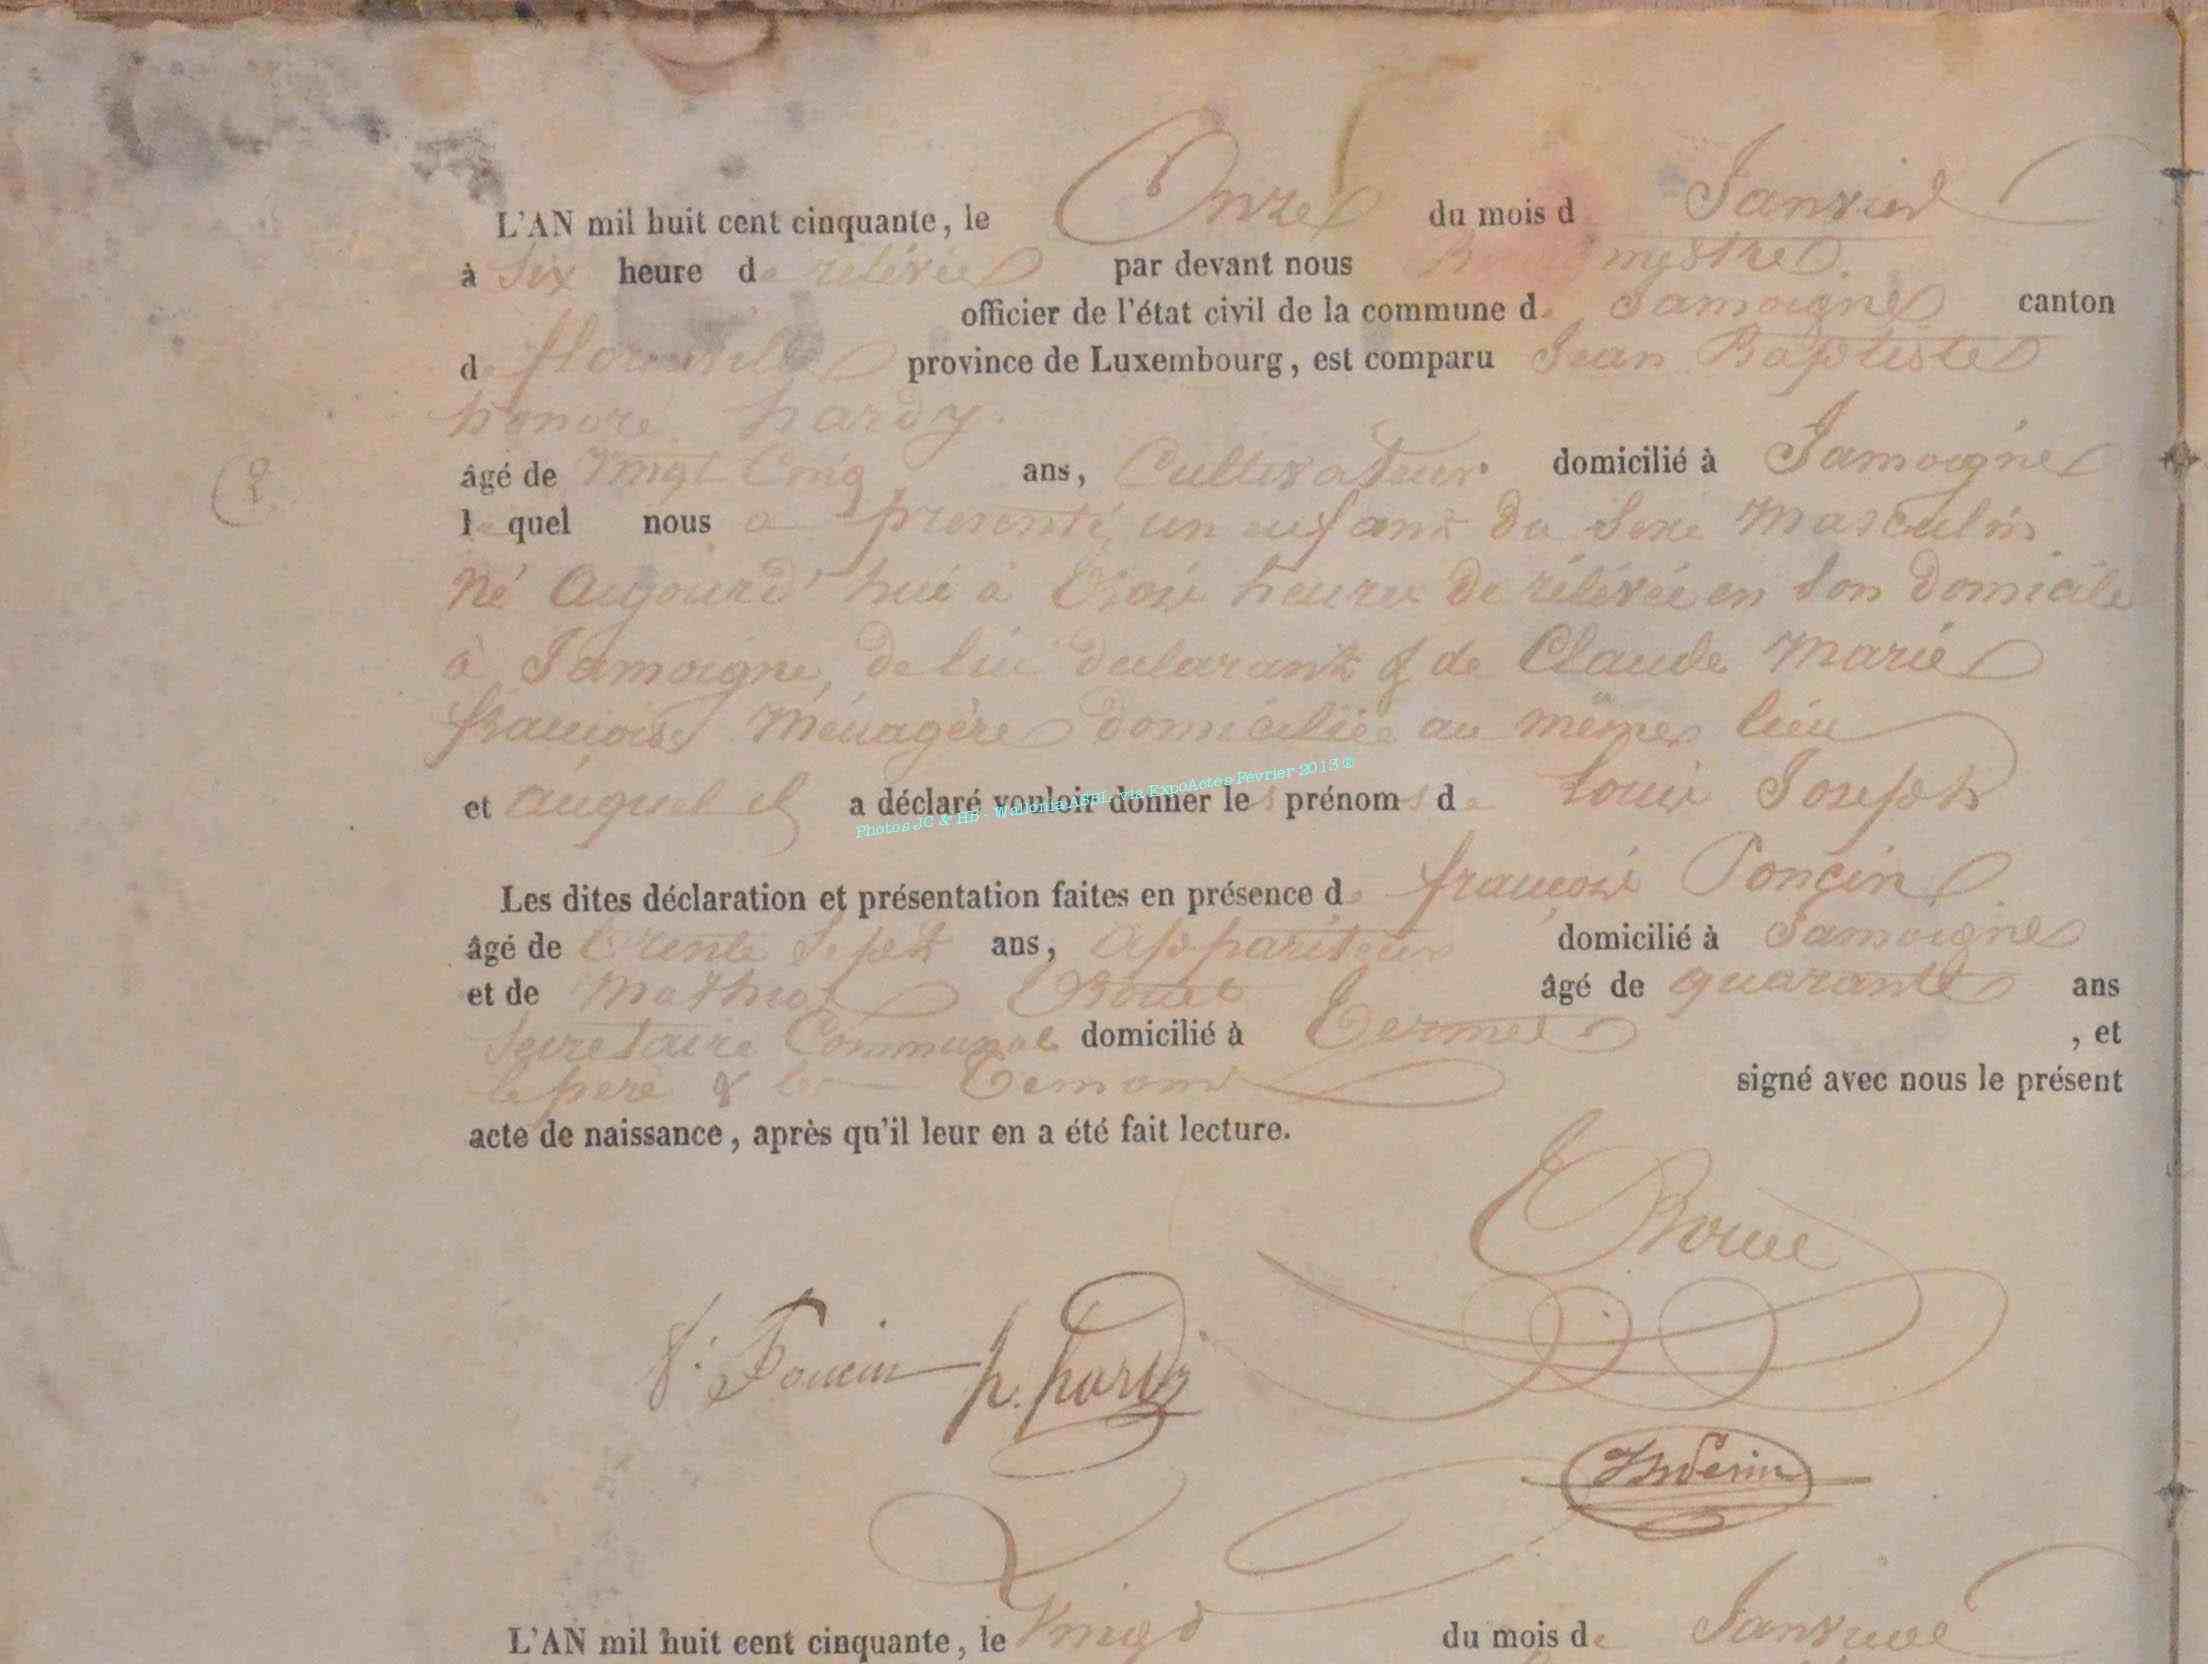 L'AN mil huit cent cinquante, le Onze du mois d Janvier
à Six heure de relevée par devant nous
officier de l'état civil de la commune de Jamoigne canton
de florenville province de Luxembourg, est comparu Jean Baptiste
honoré hardy.
âgé de vingt Cinq ans, Cultivateur domicilié à Jamoigne
le quel nous a presenté un enfant du sexe masculin
né aujourd'hui à trois heures de rélévée en son domicile
à Jamoigne, de lui déclarant & de Claude Marie
françoise Ménagère domiciliée au même lieu
et auquel il a déclaré vouloir donner les prénoms de Louis Joseph
Photos JC & HB - Wallonia ASBL, via ExpoActes Février 2013 ®
Les dites déclaration et présentation faites en présence de françois Ponçin
âgé de trente Sept ans, appariteur domicilié à Jamoigne
et de Mathias âgé de quarante ans
Secretaire Communal domicilié à Termes , et
le père & les Temoins signé avec nous le présent
acte de naissance, après qu'il leur en a été fait lecture.
f. Poncin h. hardy
L'AN mil huit cent cinquante, le vingt du mois de Janvier